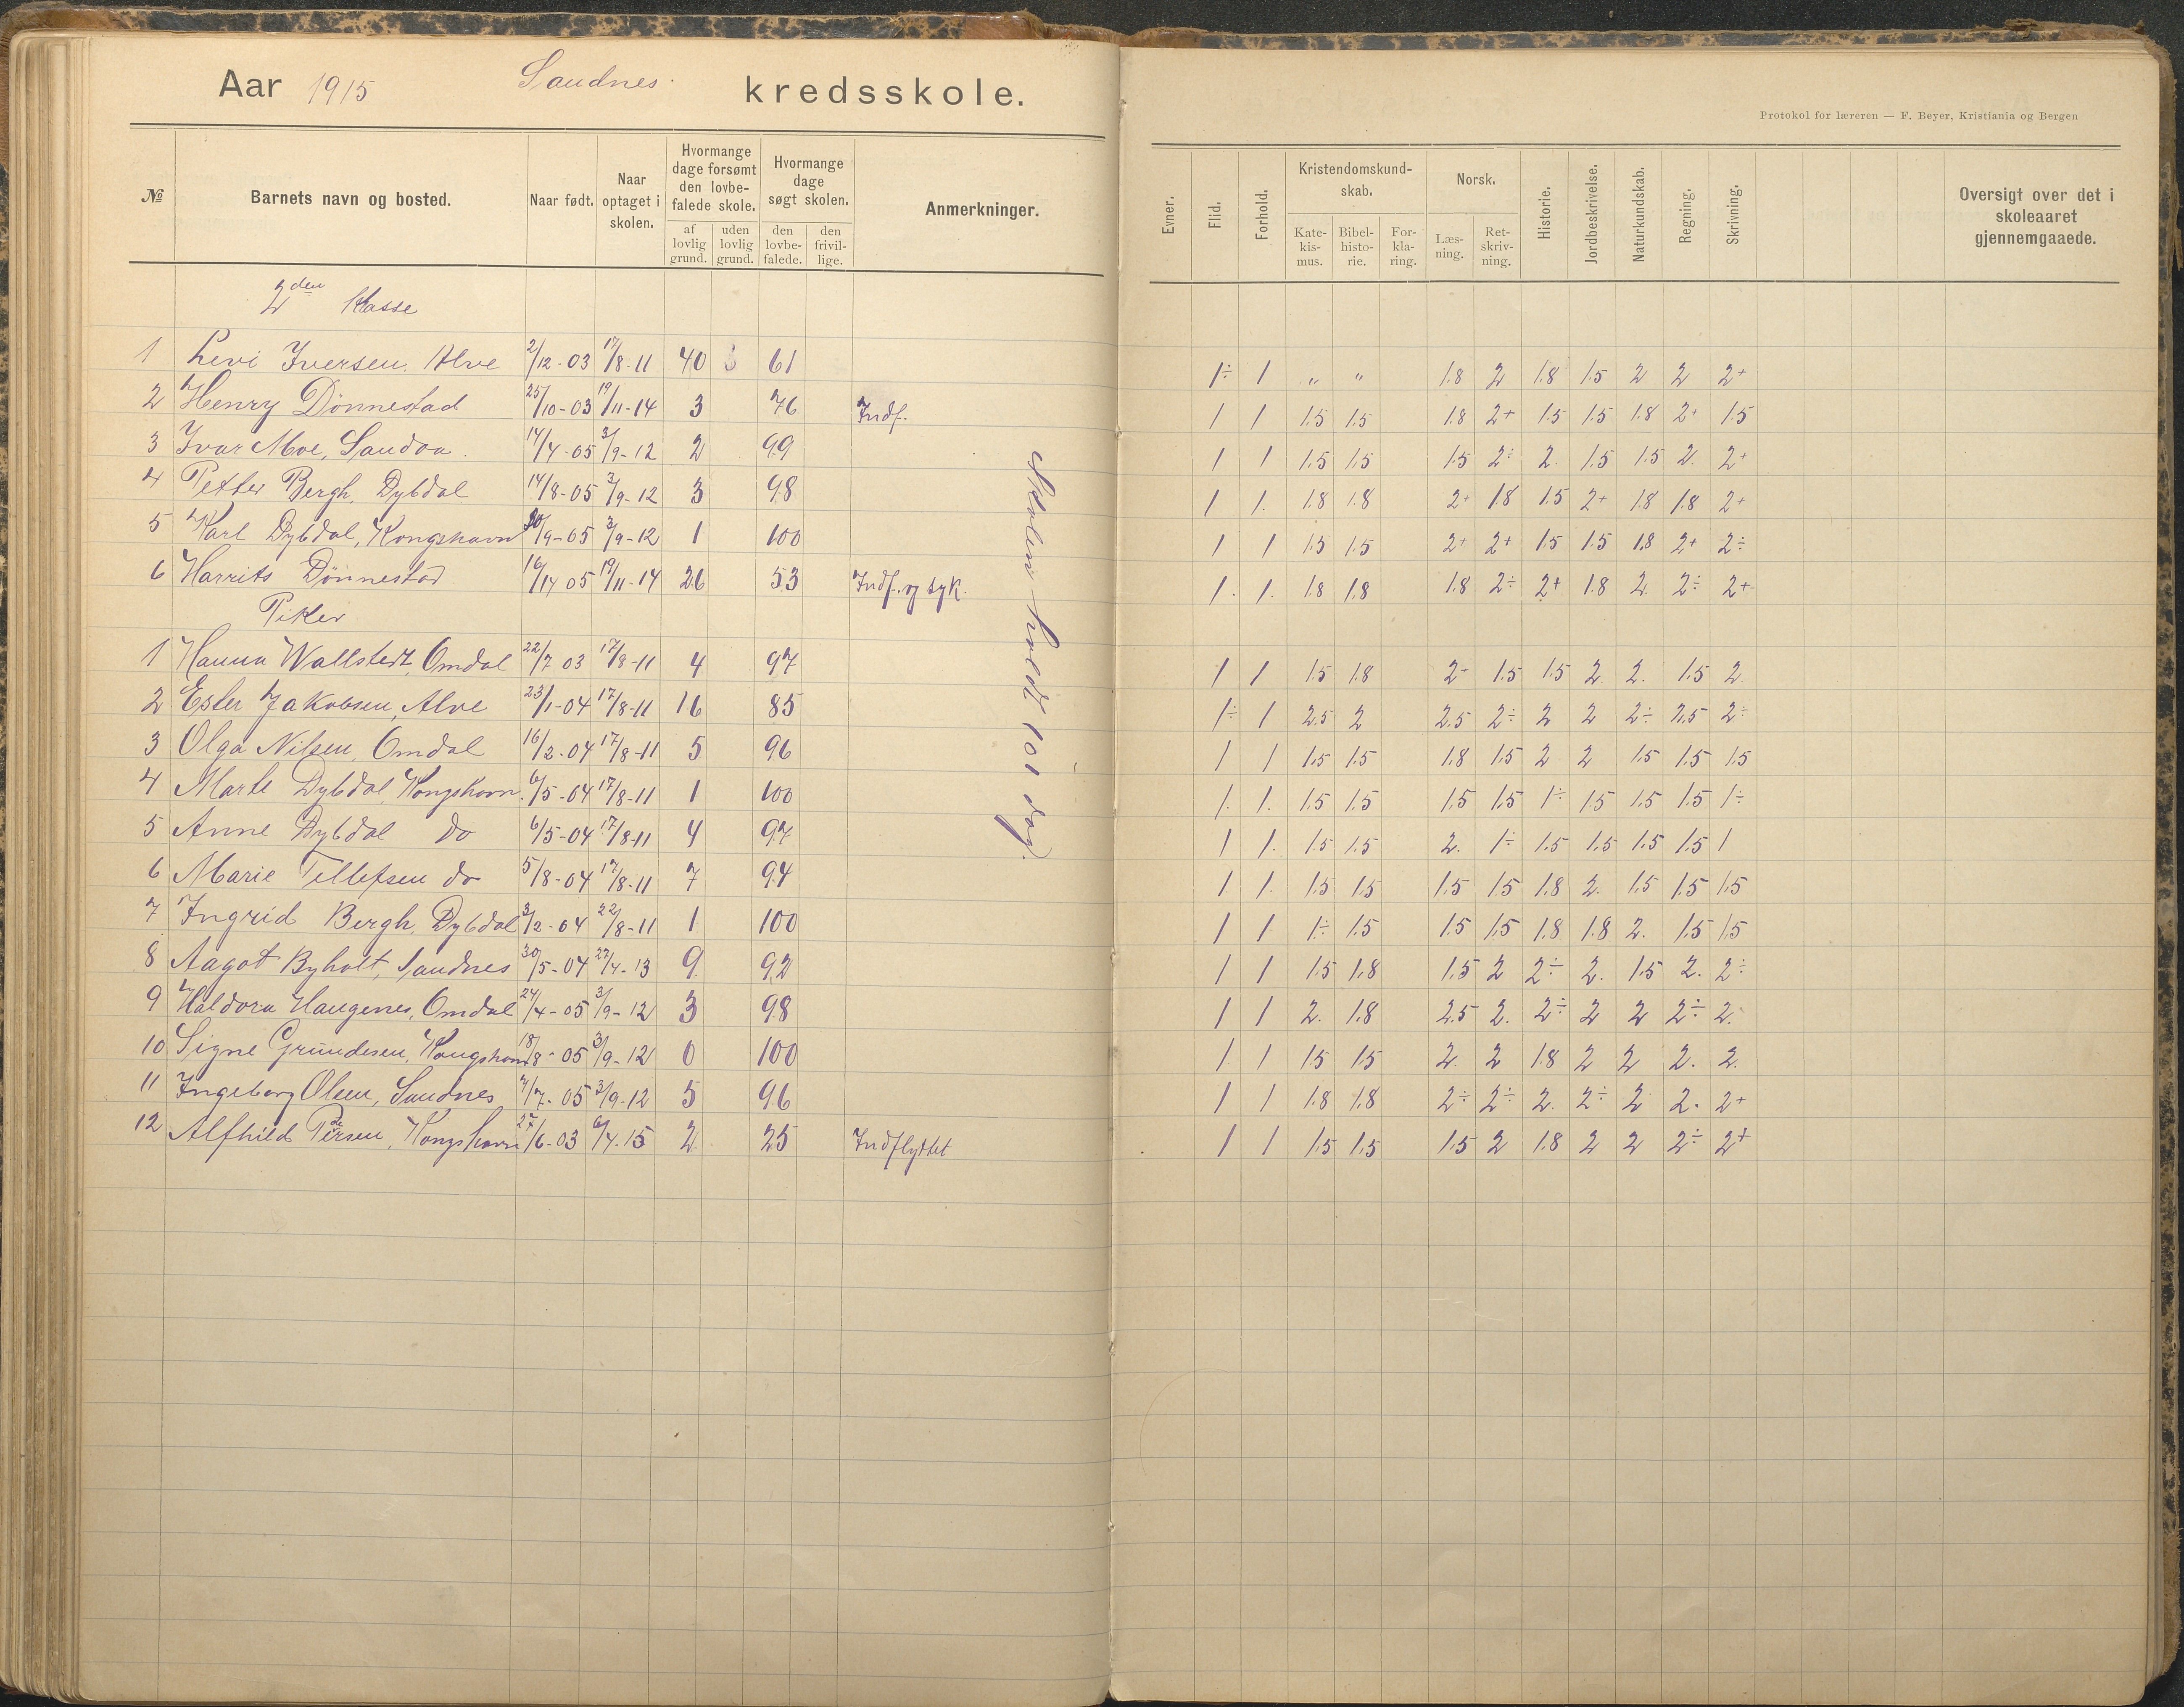 Aar 1915 Sandnes kredsskole.
Protokol for læreren — F. Beyer, Kristiania og Bergen
№ Barnets navn og bosted. Naar født. Naar optaget i skolen. Hvormange dage forsømt den lovbefalede skole. af lovlig grund. uden lovlig grund. Hvormange dage søgt skolen. den lovbefalede. den frivillige. Anmerkninger. Evner. Flid. Forhold. Kristendomskundskab. Katekismus. Bibelhistorie. Forklaring. Norsk. Læsning. Retskrivning. Historie. Jordbeskrivelse. Naturkundskab. Regning. Skrivning. Oversigt over det i skoleaaret gjennemgaaede.
2den Klasse
1 Levi Iversen, Alve 2/12-03 17/8-11 40 61 1÷ 1 " " 1.8 2 1.8 1.5 2 2 2+
2 Henry Dønnestad 25/10-03 19/11-14 3 76 Indf. 1 1 1.5 1.5 1.8 2+ 1.5 1.5 1.8 2+ 1.5
3 Ivar Moe, Sandøa. 14/4-05 3/9-12 2 99 1 1 1.5 1.5 1.5 2÷ 2. 1.5 1.5 2. 2+
4 Petter Bergh, Dybdal 14/8-05 3/9-12 3 98 1 1. 1.8 1.8 2+ 1.8 1.5 2+ 1.8 1.8 2+
5 Karl Dybdal, Kongshavn 30/9-05 3/9-12 1 100 1 1 1.5 1.5 2+ 2+ 1.5 1.5 1.8 2+ 2÷
6 Harrits Dønnestad 16/14 05 19/11-14 26 53 Indf. og syk. 1. 1. 1.8 1.8 1.8 2÷ 2+ 1.8 2. 2÷ 2+
Piker
1 Hanna Wallstedt, Omdal 22/7 03 17/8-11 4 97 1 1 1.5 1.8 2- 1.5 1.5 2. 2. 1.5 2
2 Ester Jakobsen, Alve 23/1-04 17/8-11 16 85 1÷ 1 2.5 2 2.5 2÷ 2 2 2÷ 2.5 2÷
3 Olga Nilsen, Omdal 16/2-04 17/8-11 5 96 1 1 1.5 1.5 1.8 1.5 2 2 1.5 1.5 1.5
4 Marte Dybdal, Kongshavn. 6/5-04 17/8-11 1 100 1. 1. 1.5 1.5 1.5 1.5 1÷ 1.5 1.5 1.5 1÷
5 Anne Dybdal do 6/5-04 17/8-11 4 97 1 1. 1.5 1.5 2. 1÷ 1.5 1.5 1.5 1.5 1
6 Marie Tellefsen do 5/8-04 17/8-11 7 94 1 1. 1.5 1.5 1.5 1.5 1.8 2. 1.5 1.5 1.5
7 Ingrid Bergh, Dybdal 3/12-04 22/8-11 1 100 1 1 1÷ 1.5 1.5 1.5 1.8 1.8 2. 1.5 1.5
8 Aagot Byholt, Sandnes 30/5-04 22/4-13 9 92 1 1 1.5 1.8 1.5 2 2÷ 2. 1.5 2. 2÷
9 Haldora Haugenes, Omdal 24/4-05 3/9-12 3 98 1 1 2. 1.8 2.5 2. 2÷ 2 2 2÷ 2.
10 Signe Gründesen, Kongshavn 18/8-05 3/9-12 0 100 1 1 1.5 1.5 2. 2 1.8 2 2 2. 2.
11 Ingeborg Olsen, Sandnes 7/7-05 3/9-12 5 96 1 1 1.8 1.8 2÷ 2÷ 2. 2÷ 2 2. 2+
12 Alfhild Pedersen, Kongshavn 27/6-03 6/4-15 2 25 Indflyttet 1 1 1.5 1.5 1.5 2 1.8 2 2 2÷ 2+
Skolen holdt 101 dag.